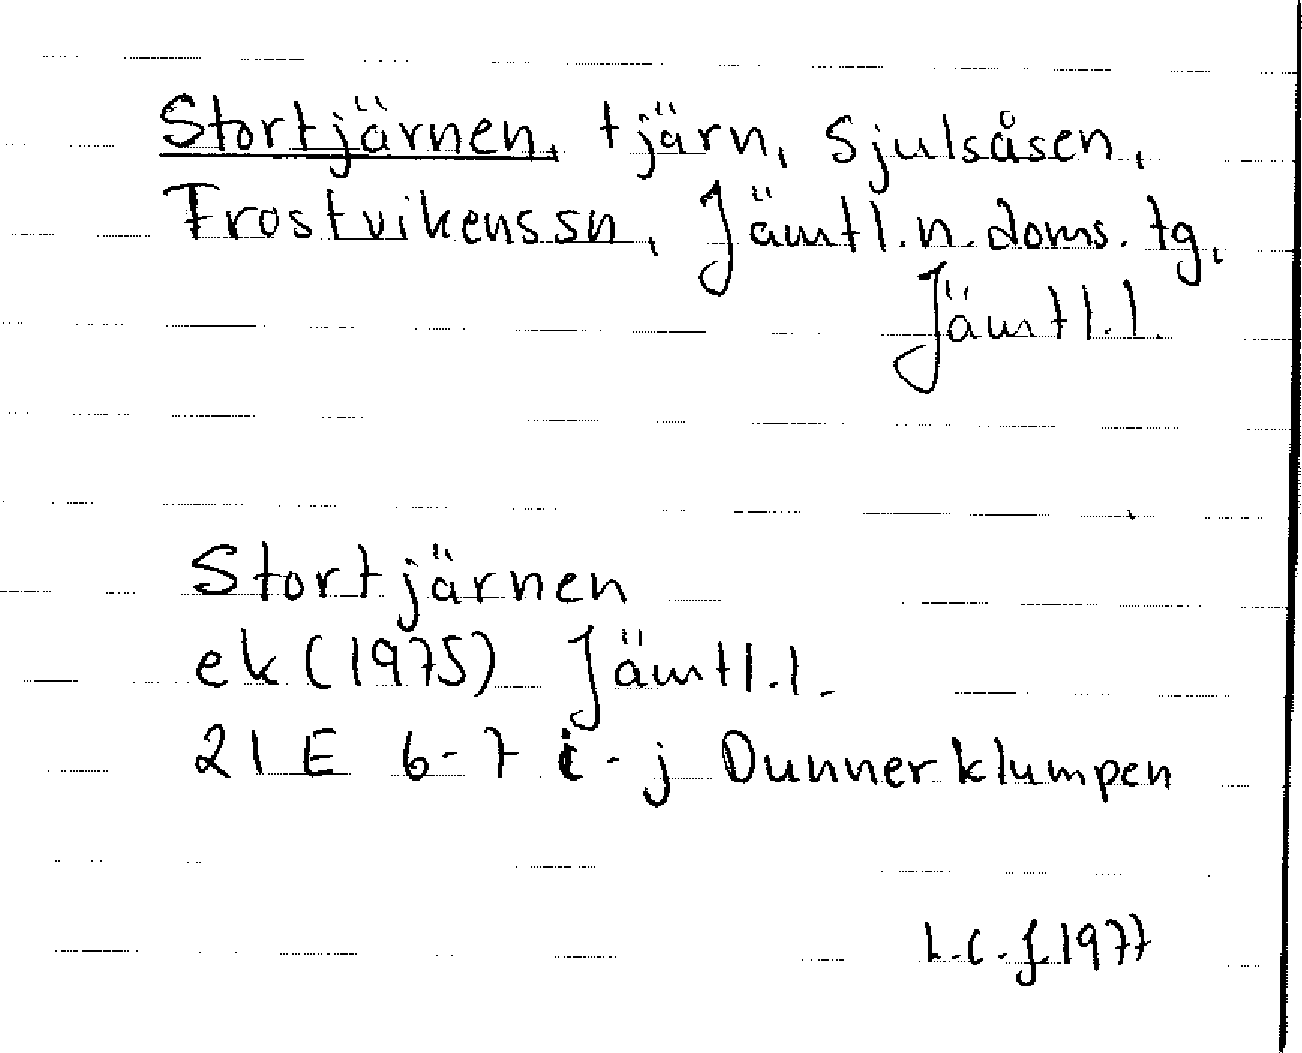 Stortjärnen, tjärn, Sjulsåsen,
Frostvikens sn, Jämtl. n. doms. tg,
Jämtl. l.
Stortjärnen
ek (1975) Jämtl. l.
21E 6-7 i-j Dunnerklumpen
L.C.J. 1977